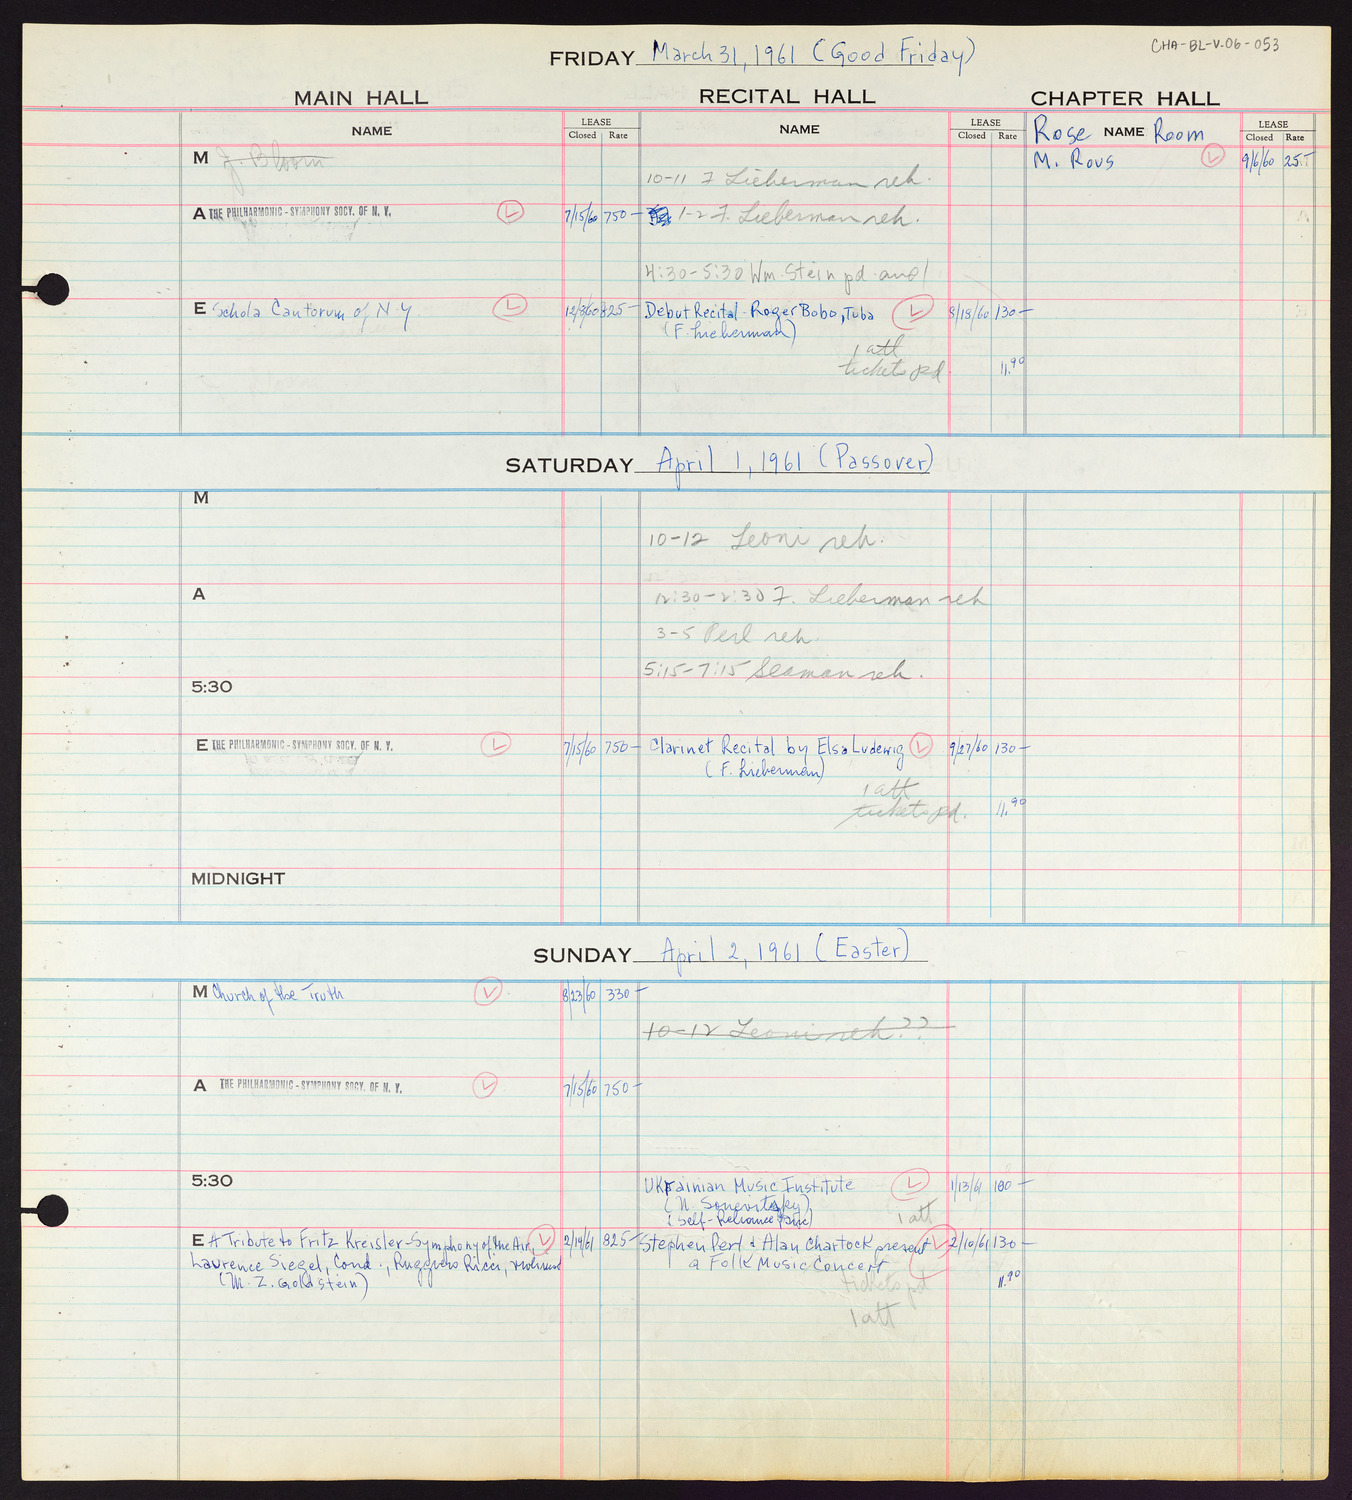 CHA-BL-V.06-053
FRIDAY March 31, 1961 (Good Friday)
MAIN HALL RECITAL HALL CHAPTER HALL
NAME LEASE Closed Rate NAME LEASE Closed Rate Rose NAME Room LEASE Closed Rate
M J. Bloom M. Rovs 9/6/60 25.-
10-11 F Lieberman reh.
A THE PHILHARMONIC-SYMPHONY SOCY. OF N. Y. 7/15/60 750- 1-2 F. Lieberman reh.
4:30-5:30 Wm. Stein pd. aud
E Schola Cantorum of N Y 12/3/60 825- Debut Recital - Roger Bobo, Tuba 8/18/60 130-
(F. Lieberman)
1 att
tickets pd 11.90
SATURDAY April 1, 1961 (Passover)
M
10-12 Leoni reh.
A 12:30-2:30 F. Lieberman reh
3-5 Perl reh.
5:15-7:15 Seaman reh.
5:30
E THE PHILHARMONIC-SYMPHONY SOCY. OF N. Y. 7/15/60 750- Clarinet Recital by Elsa Ludewig 9/27/60 130-
(F. Lieberman)
1 att
tickets pd. 11.90
MIDNIGHT
SUNDAY April 2, 1961 (Easter)
M Church of the Truth 8/23/60 330-
10-12 Leoni reh??
A THE PHILHARMONIC-SYMPHONY SOCY. OF N. Y. 7/15/60 750-
5:30 Ukrainian Music Institute 1/13/61 100-
(Self-Reliance
1 att
E A Tribute to Fritz Kreisler-Symphony of the Air, 2/14/61 825- Stephen Perl & Alan Chartock present 2/10/61 130-
Lawrence Siegel, Cond., Ruggiero Ricci, Violinist a Folk Music Concert
(M. Z. Goldstein) tickets pd 11.90
1 att